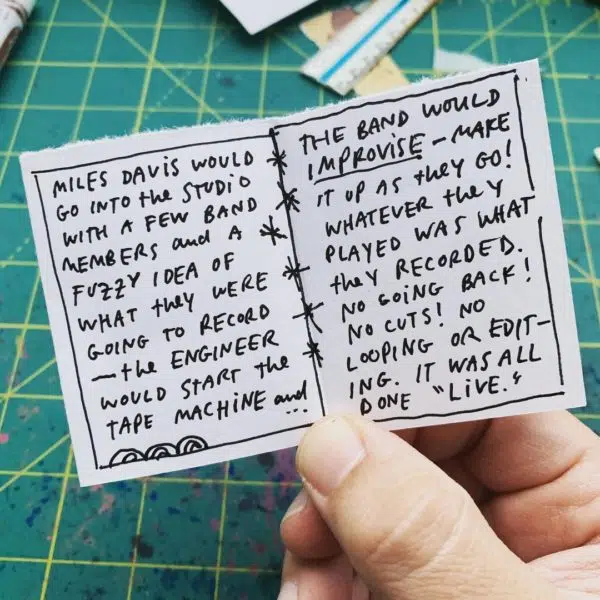 MILES DAVIS WOULD
GO INTO the STUDIO
WITH A FEW BAND
MEMBERS and A
FUZZY IDEA OF
WHAT they WERE
GOING TO RECORD
—the ENGINEER
WOULD START the
TAPE MACHINE and
...
THE BAND WOULD
IMPROVISE — MAKE
IT UP AS they GO!
WHATEVER they
PLAYED WAS WHAT
they RECORDED.
NO GOING BACK!
NO CUTS! NO
LOOPING OR EDIT-
ING. IT WAS ALL
DONE "LIVE."